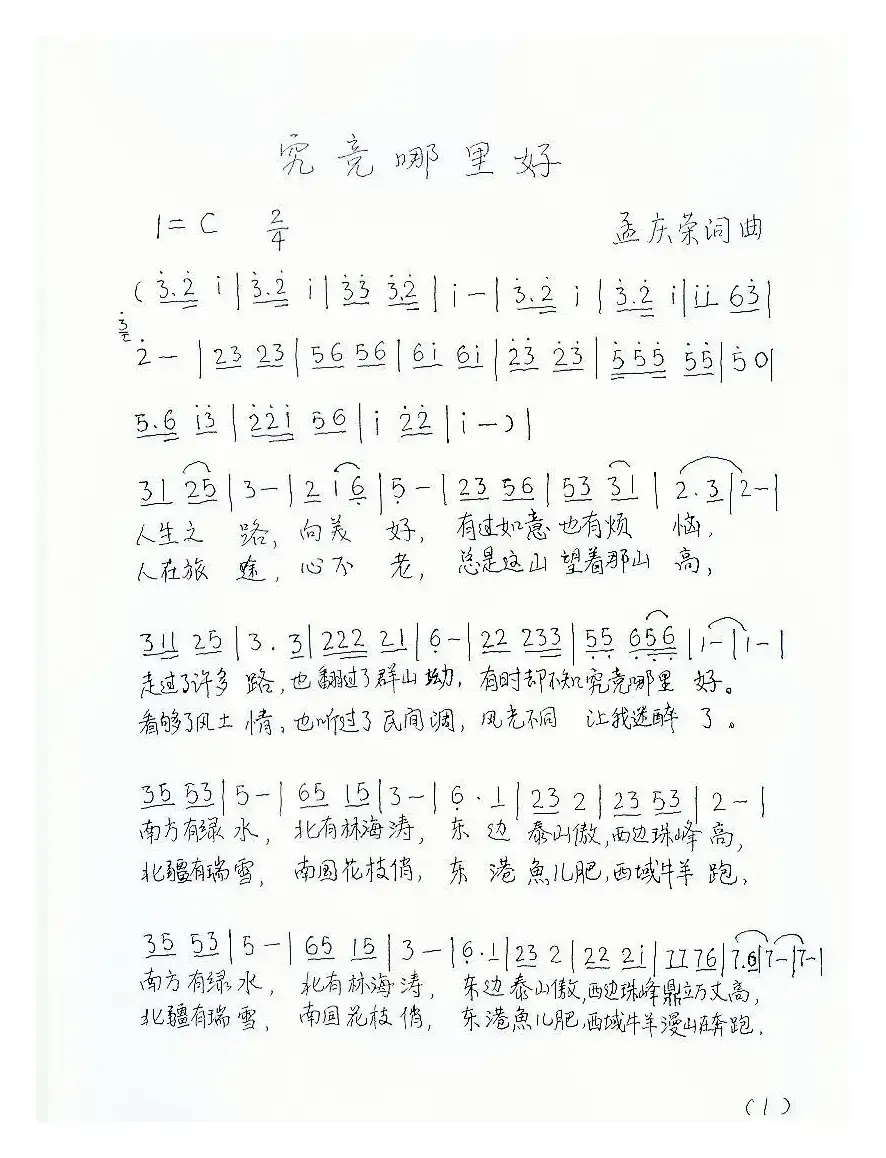 究竟哪里好
1=C 2/4 孟庆荣词曲
( 3̇.2̇ i | 3̇.2̇ i | 3̇3̇ 3̇.2̇ | i - | 3̇.2̇ i | 3̇.2̇ i | ii 63̇ |
3̇ 2̇ - | 23 23 | 56 56 | 6i 6i | 2̇3̇ 2̇3̇ | 5̇5̇5̇ 5̇5̇ | 5̇ 0 |
5.6 i3̇ | 2̇2̇i 56 | i 2̇2̇ | i - ) |
31 25 | 3 - | 2 1 6̣ | 5̣ - | 23 56 | 53 31 | 2.3 | 2 - |
人生之 路，向美 好，有过如意也有烦 恼，
人在旅 途，心不 老，总是这山望着那山 高，
311 25 | 3 . 3 | 222 21 | 6̣ - | 22 233 | 5̣5̣ 6̣5̣6̣ | 1 - | 1 - |
走过了许多 路，也翻过了群山坳，有时却不知究竟哪里 好。
看够了风土 情，也听过了民间调，风光不同 让我迷醉 了。
35 53 | 5 - | 65 15 | 3 - | 6̣ . 1 | 23 2 | 23 53 | 2 - |
南方有绿水，北有林海涛，东 边 泰山傲，西边珠峰高，
北疆有瑞雪，南国花枝俏，东 港魚儿肥，西域牛羊 跑，
35 53 | 5 - | 65 15 | 3 - | 6̣ . 1 | 23 2 | 22 2i | 77 76 | 7.6 | 7 - | 7 - |
南方有绿水，北有林海涛，东边泰山傲，西边珠峰鼎立万丈高，
北疆有瑞雪，南国花枝俏，东港魚儿肥，西域牛羊漫山在奔跑，
(1)